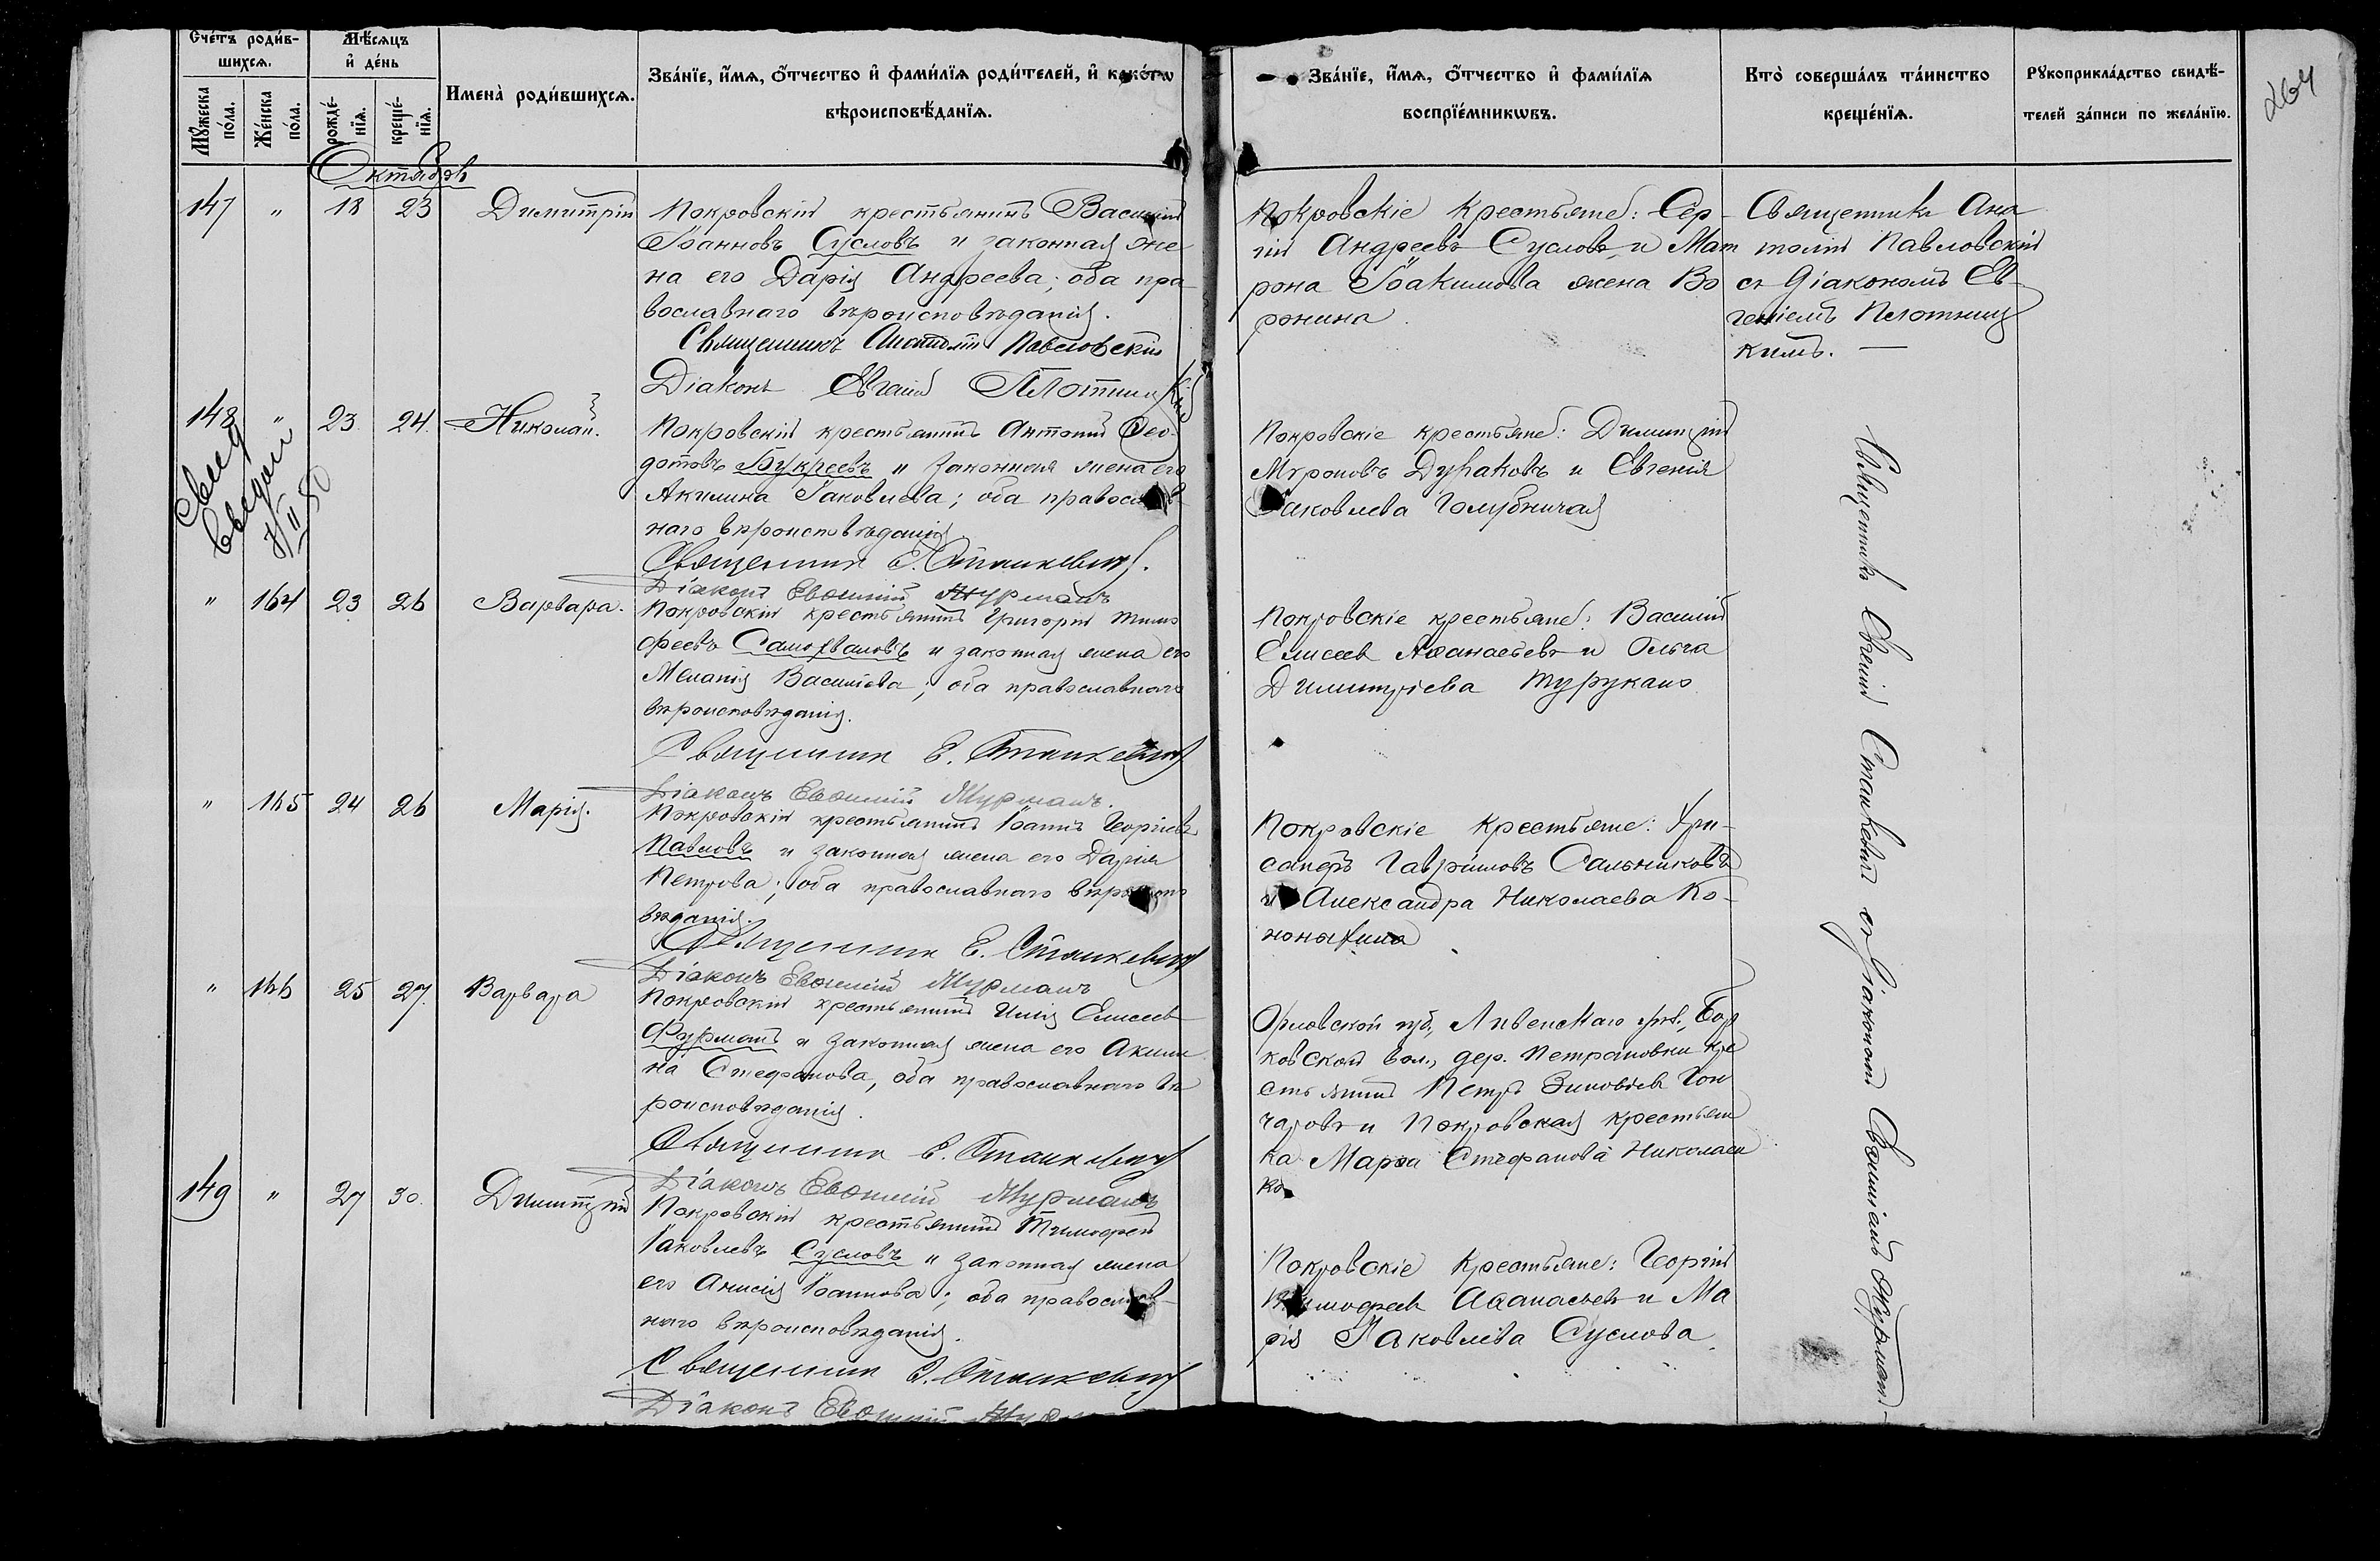 Счетъ родив-
шихся.
Мѣсяцъ
и день
Мужеска
пола.
Женска
пола.
рожде-
нія.
креще-
нія.
Имена родившихся.
Званіе, имя, отчество и фамилія родителей, и какогѡ
вѣроисповѣданія.
Званіе, имя, отчество и фамилія
воспріемникѡвъ.
Кто совершалъ таинство
крещенія.
Рукоприкладство свидѣ-
телей записи по желанію.
264
Октябрь
147 " 18 23 Димитрій
Покровскій крестьянинъ Василій
Іоанновъ Сусловъ и законная же
на его Дарія Андреева; оба пра
вославнаго вѣроисповѣданія.
Священникъ Анатолій Павловскій
Діаконъ Евгеній Плотницкій
Покровскіе крестьяне: Сер-
гій Андреевъ Сусловъ и Мат
рона Іоакимова жена Во
ронина
Священникъ Ана
толій Павловскій
съ діакономъ Ев-
геніемъ Плотниц
кимъ. —
148 " 23 24 Николай.
Покровскій крестьянинъ Антоній Ѳео-
дотовъ Букреевъ и законная жена его
Акилина Іаковлева; оба православ-
наго вѣроисповѣданія
Священникъ Е. Станкевичъ.
Діаконъ Евѳимій Журманъ
Покровскіе крестьяне: Димитрій
Мироновъ Дураковъ и Евгенія
Іаковлева Голубничая
" 164 23 26 Варвара.
Покровскій крестьянинъ Григорій Тимо
феевъ Самохваловъ и законная жена его
Меланія Васильева; оба православнаго
вѣроисповѣданія.
Священникъ Е. Станкевичъ
Діаконъ Евѳимій Журманъ.
Покровскіе крестьяне: Василій
Елисеев Аѳанасьевъ и Ольга
Димитріева Турукало
" 165 24 26 Марія.
Покровскій крестьянинъ Іоаннъ Георгіевъ
Павловъ и законная жена его Дарія
Петрова; оба православнаго вѣроиспо
вѣданія.
Священникъ Е. Станкевичъ
Діаконъ Евѳимій Журманъ
Покровскіе крестьяне: Хри-
санфъ Гавріиловъ Сальниковъ
и Александра Николаева Ко-
" 166 25 27 Варвара
Покровскій крестьянинъ Илія Елисеев
Фурманъ и законная жена его Акили
на Стефанова, оба православнаго вѣ
роисповѣданія.
Священникъ Е. Станкевичъ
Діаконъ Евѳимій Журманъ
Орловской губ., Ливенскаго уѣз.,
вол., дер. Петрановки кре
стьянинъ Петръ Зиновіев Гон
чаровъ и Покровская крестьян
ка Марѳа Стефанова Николаен
ко
149 " 27 30 Димитрій
Покровскій крестьянинъ Тимофей
Іаковлевъ Сусловъ и законная жена
его Анисія Іоаннова; оба православ-
наго вѣроисповѣданія.
Священникъ Е. Станкевичъ
Діаконъ Евѳимій Журманъ
Покровскіе крестьяне: Георгій
Тимофеев Аѳанасьевъ и Ма
рія Іаковлева Суслова
Священникъ Евгеній Станкевичъ съ діакономъ Евѳиміемъ Журманъ